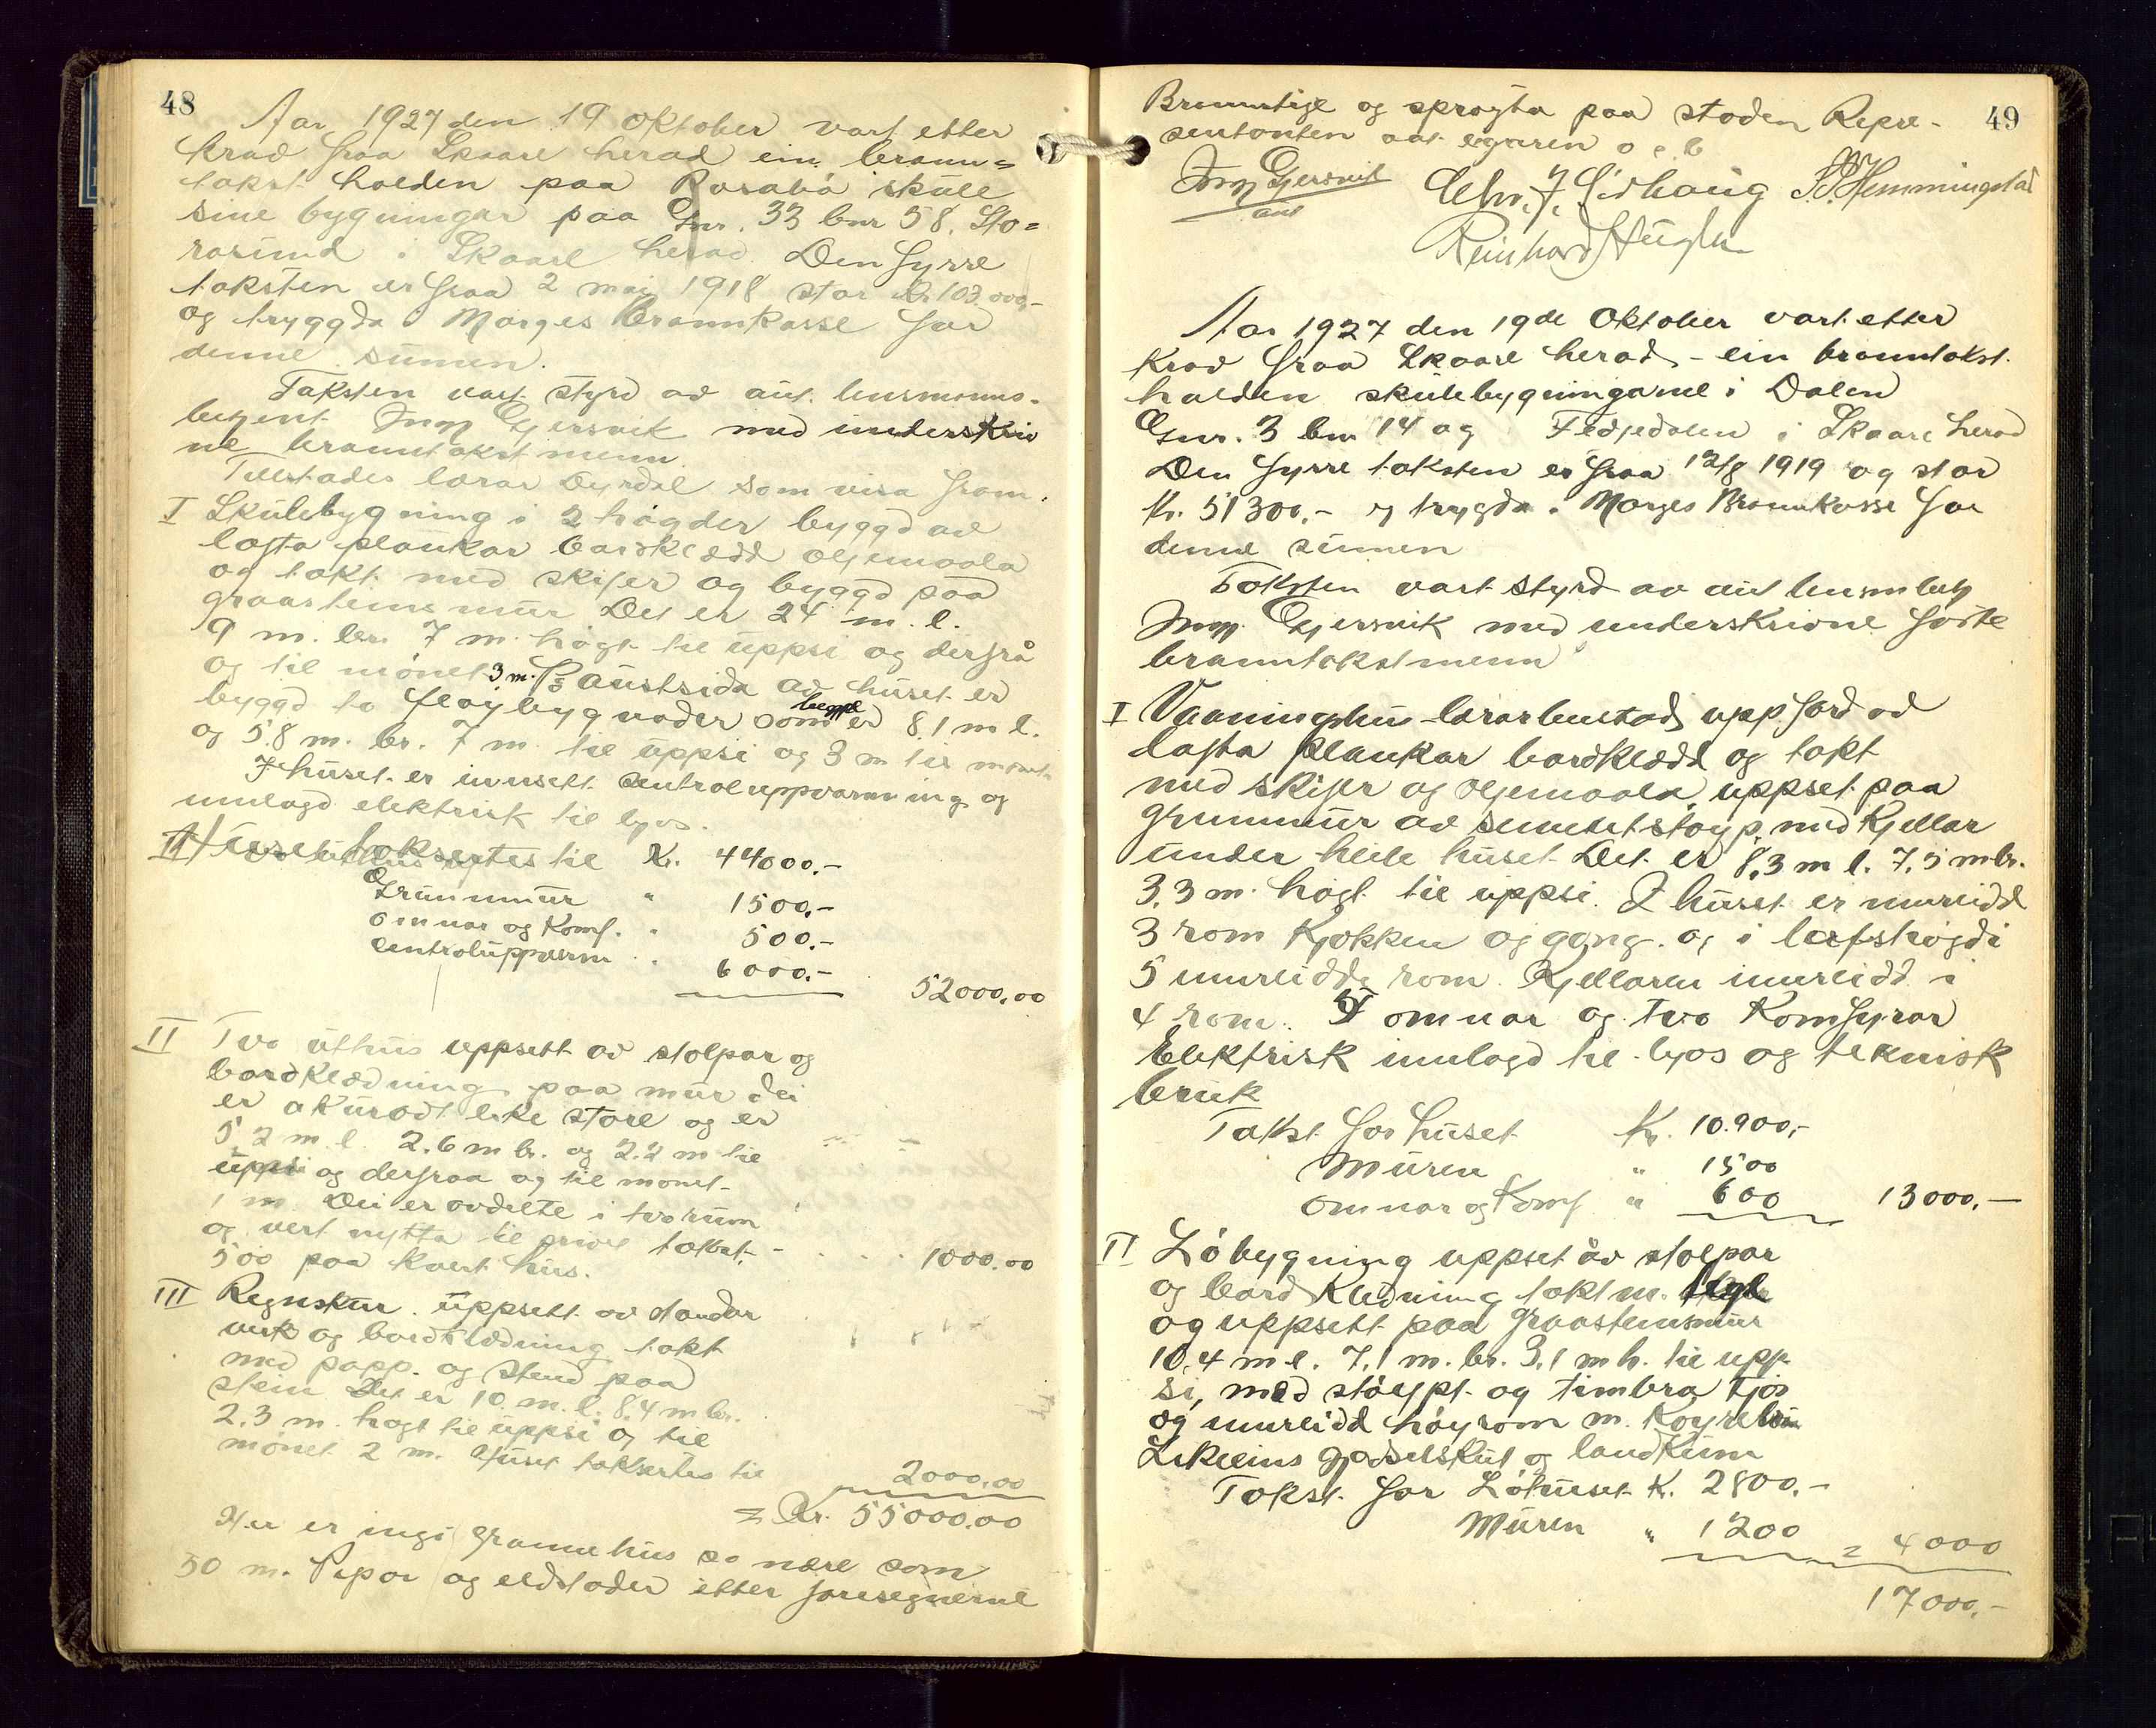 48
Aar 1927 den 19 Oktober vart etter
krav fraa Skaare herad ein brann=
takst halden paa Rosabø skule
sine bygningar paa Gnr. 33 bnr 58. Sto=
rasund i Skaare herad. Den fyrre
taksten er fraa 2 mai 1918 stor Kr 103.000,-
og tryggda i Norges Brannkasse for
denne sumen.
Taksten vart styrd av aut. lensmanns-
betjent Ingv Gjersvik med underskriv
ne branntakstmenn
Tilstades lærar Dyrdal som visa fram:
I Skulebygning i 2 høgder byggd av
lafta plankar bordklædd oljemaala
og takt med skifer og byggd paa
graasteinsmur Det er 24 m. l.
9 m. br. 7 m. høgt til uppsi og derfrå
og til mønet 3 m. På austsida av huset er
byggd to fløybygnader som begge er 8,1 m l.
og 5.8 m. br. 7 m. til uppsi og 3 m til mønet
I huset er innsett sentraluppvarming og
innlagd elektrisk til lyos.
Huset taksertes til Kr. 44000.-
Grunnmur " 1500.-
Omnar og Komf. " 500.-
Sentraluppvarm " 6000.-
52000,00
II Tvo uthus uppsett av stolpar og
bordklædning paa mur dei
er akurat like store og er
5,2 m l. 2.6 m br. og 2.2 m til
uppsi og derfraa og til mønet
1 m. Dei er avdelte i tvo rum
og vert nytta til privet takst. - . . . 1000.00
500 paa kvert hus.
III Regnskur uppsett av standar
verk og bordklædning takt
med papp. og stend paa
stein Det er 10. m. l. 8,4 m br.
2.3 m. høgt til uppsi og til
mønet 2 m. Huset taksertes til
2000.00
= Kr. 55000.00
Her er ingi grannehus so nære som
30 m. Pipor og eldstader etter foresegnerne
49
Brannstige og sprøyta paa staden Repre-
sentanten aat egaren o e b
Ingv Gjersvik
aut
Chr. J. Lidhaug S. S. Hemmingstad
Reinhard
Aar 1927 den 19de Oktober vart etter
Krav fraa Skaare herad - ein branntakst
halden skulebygningarne i Dalen
Gnr. 3 bnr 14 og Fedjedalen i Skaare herad
Den fyrre taksten er fraa 12/8 1919 og stor
Kr. 51300.- og trygda i Norges Brannkasse for
denne sumen
Taksten vart styrd av aut lensmbetj
Ingv. Gjersvik med underskrivne faste
branntakstmenn
I Vaaningshus lærarbustad uppførd av
lafta plankar bordklædd og takt
med skifer og oljemaala uppset paa
grunnmur av sementstøyp med Kjellar
under heile huset Det er 8,3 m l. 7,5 m br.
3,3 m. høgt til uppsi. I huset er innreidd
3 rom Kjøkken og gang. og i loftshøgdi
5 innreidde rom. Kjellaren innreidd i
4 rom. 5 omnar og tvo Komfyrar
Elektrisk innlagd til lyos og teknisk
bruk
Takst for huset Kr. 10.900,-
Muren " 1500
Omnar og Komf " 600 13000.-
II Løbygning uppset av stolpar
og bord Klædning takt m. tegl
og uppsett paa graasteinsmur
10.4 m l. 7,1 m. br. 3,1 m h. til upp
si, med støypt og timbra fjos
og innreidd høyrom m. Køyrebru
Likeeins gjødselskut og landkum
Takst for Løhuset Kr. 2800.-
Muren " 1200 = 4000
17000.-